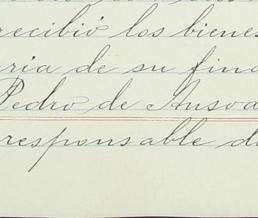 recibió los bienes
ria de su fin
Pedro de Ansoa
responsable d